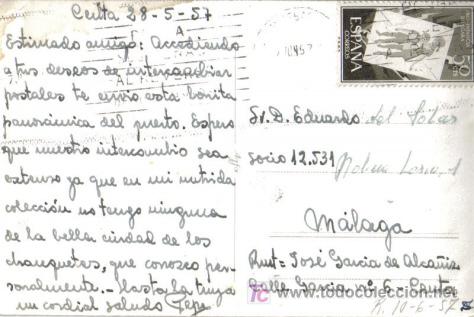 Ceuta 28-5-57
Estimado amigo: Accediendo
a tus deseos de intercambiar
postales te envio esta bonita
panorámica del puerto. Espero
que nuestro intercambio sea
extenso ya que en mi nutrida
colección no tengo ninguna
de la bella ciudad de los
chanquetes, que conozco per-
sonalmente. Hasta la tuya
un cordial saludo Pepe
ESPAÑA
CORREOS
Sr. D. Eduardo del
Socio 12.531
Málaga
Rmt = José Garcia de Alcañiz
Calle Garcia nº 6 - Ceuta
R. 10-6-57
todocoleccion.net